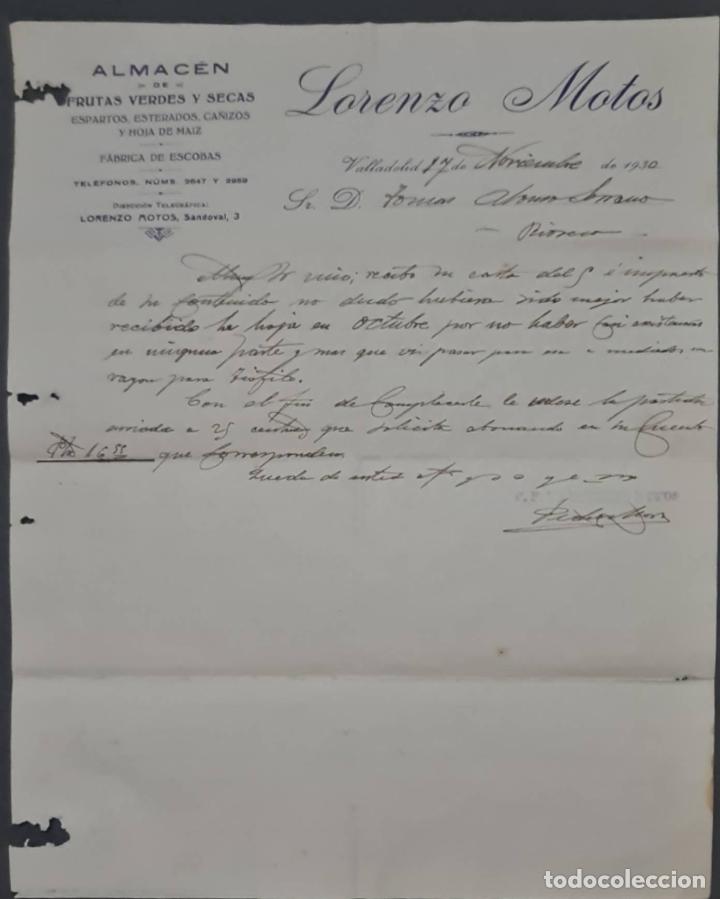 ALMACÉN
DE
FRUTAS VERDES Y SECAS
ESPARTOS, ESTERADOS, CAÑIZOS
Y HOJA DE MAIZ
FÁBRICA DE ESCOBAS
TELÉFONOS, NÚMS. 2647 Y 2959
DIRECCIÓN TELEGRÁFICA:
LORENZO MOTOS, Sandoval, 3
Lorenzo Motos
Valladolid 17 de Noviembre de 1930
Sr. D. Tomas Alonso
Rioseco
Muy Sr mio; recibo su carta del 5 é impuesto
de su contenido no dudo hubiera sido mejor haber
recibido la hoja en Octubre por no haber casi existencias
en ninguna parte y mas que
vagon para
Con el fin de Complacerle le la partida
a 25 que solicita abonando en su Cuenta
Pts 16 55 que Corresponden
Queda de usted
todocoleccion